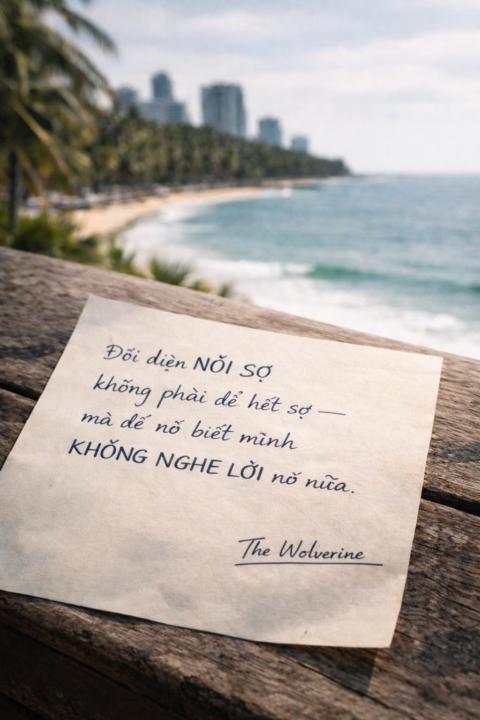 Đối diện NỖI SỢ
không phải để hết sợ —
mà để nó biết mình
KHÔNG NGHE LỜI nó nữa.
The Wolverine